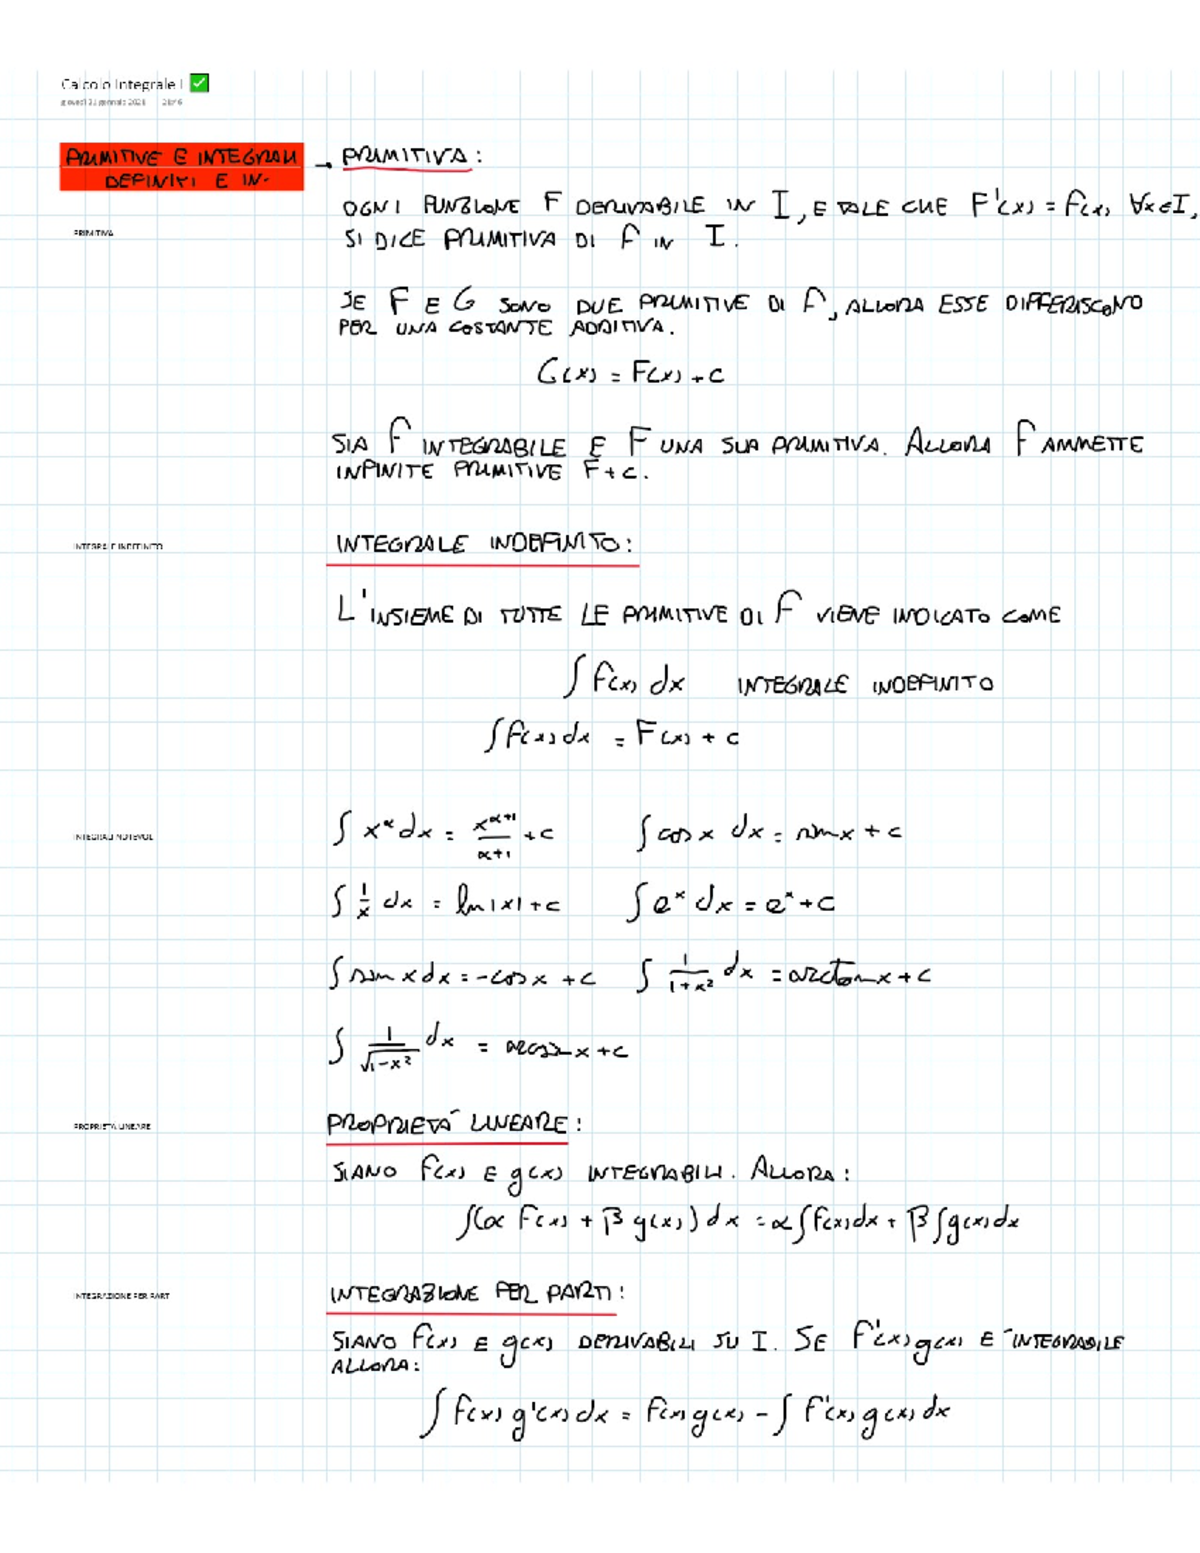 Calcolo Integrale I ✅
giovedì 21 gennaio 2021
PRIMITIVE E INTEGRALI
DEFINITI E IN-
→ PRIMITIVA:
PRIMITIVA
OGNI FUNZIONE F DERIVABILE IN I, E TALE CHE F'(x) = f(x), ∀x∈I,
SI DICE PRIMITIVA DI f IN I.
SE F E G SONO DUE PRIMITIVE DI f, ALLORA ESSE DIFFERISCONO
PER UNA COSTANTE ADDITIVA.
G(x) = F(x) + C
SIA f INTEGRABILE E F UNA SUA PRIMITIVA. ALLORA f AMMETTE
INFINITE PRIMITIVE F+C.
INTEGRALE INDEFINITO
INTEGRALE INDEFINITO:
L'INSIEME DI TUTTE LE PRIMITIVE DI f VIENE INDICATO COME
∫ f(x) dx INTEGRALE INDEFINITO
∫ f(x) dx = F(x) + c
INTEGRALI NOTEVOL
∫ x^α dx = x^(α+1)/(α+1) + c ∫ cos x dx = sin x + c
∫ 1/x dx = ln|x| + c ∫ e^x dx = e^x + c
∫ sin x dx = -cos x + c ∫ 1/(1+x²) dx = arctan x + c
∫ 1/√(1-x²) dx = arcsin x + c
PROPRIETA LINEARE
PROPRIETÀ LINEARE:
SIANO f(x) E g(x) INTEGRABILI. ALLORA:
∫(α f(x) + β g(x)) dx = α∫f(x)dx + β∫g(x)dx
INTEGRAZIONE PER PART
INTEGRAZIONE PER PARTI:
SIANO f(x) E g(x) DERIVABILI SU I. SE f'(x)g(x) E' INTEGRABILE
ALLORA:
∫ f(x) g'(x) dx = f(x)g(x) - ∫ f'(x)g(x) dx